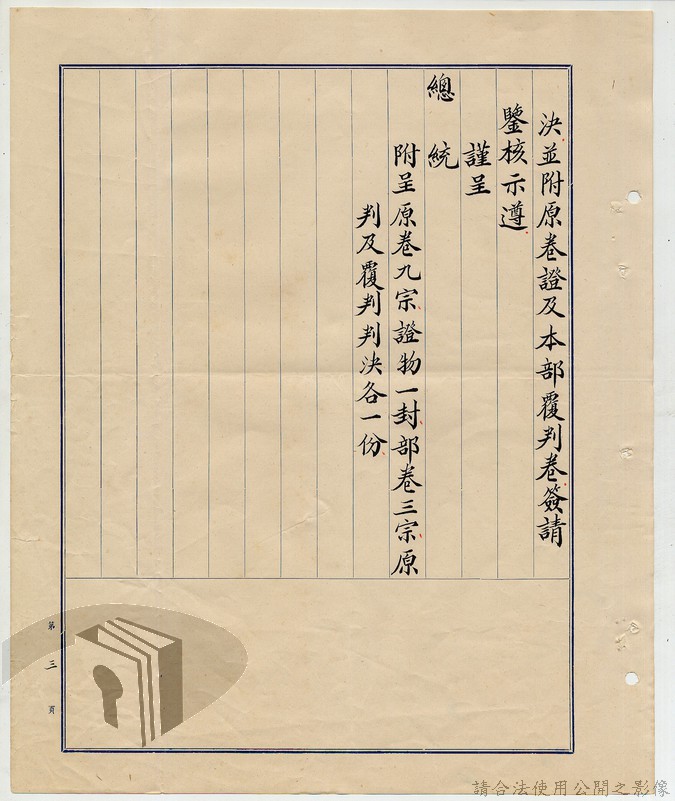 決並附原卷證及本部覆判卷簽請
鑒核示遵
謹呈
總統
附呈原卷九宗證物一封部卷三宗原
判及覆判判決各一份
第三頁
請合法使用公開之影像